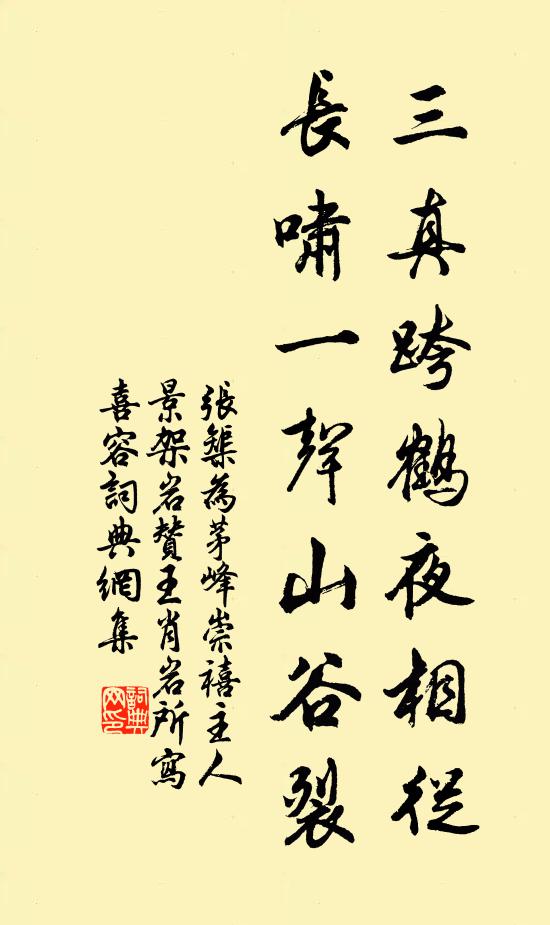 三真跨鶴夜相從
長嘯一聲山谷裂
張榘為茅峰崇禧主人
景架岩贊王肖岩所寫
喜容詞典網集
詞典網印